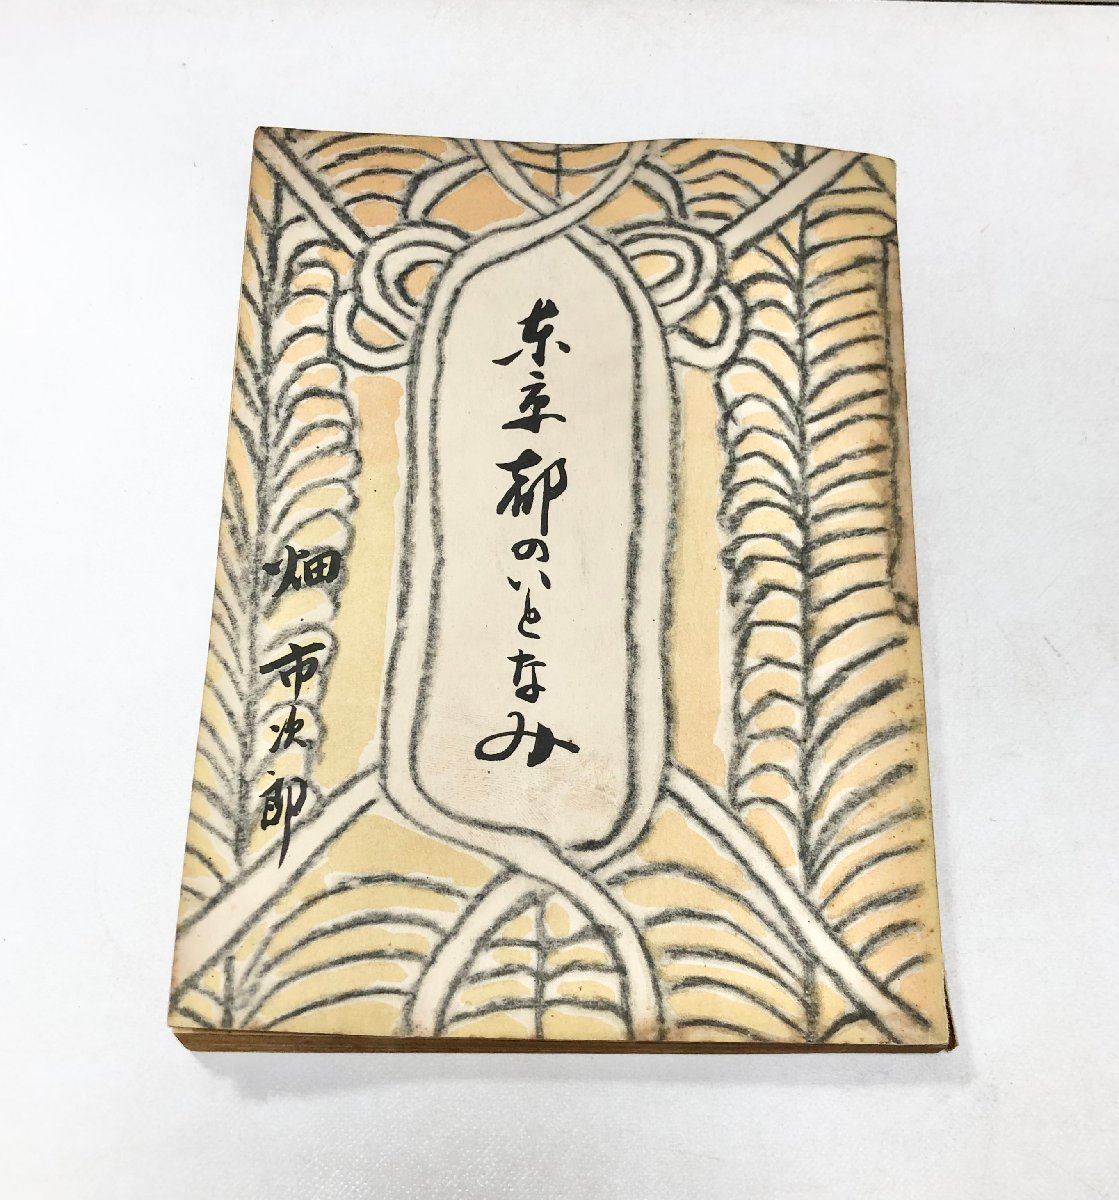 東京都のいとなみ
畑市次郎